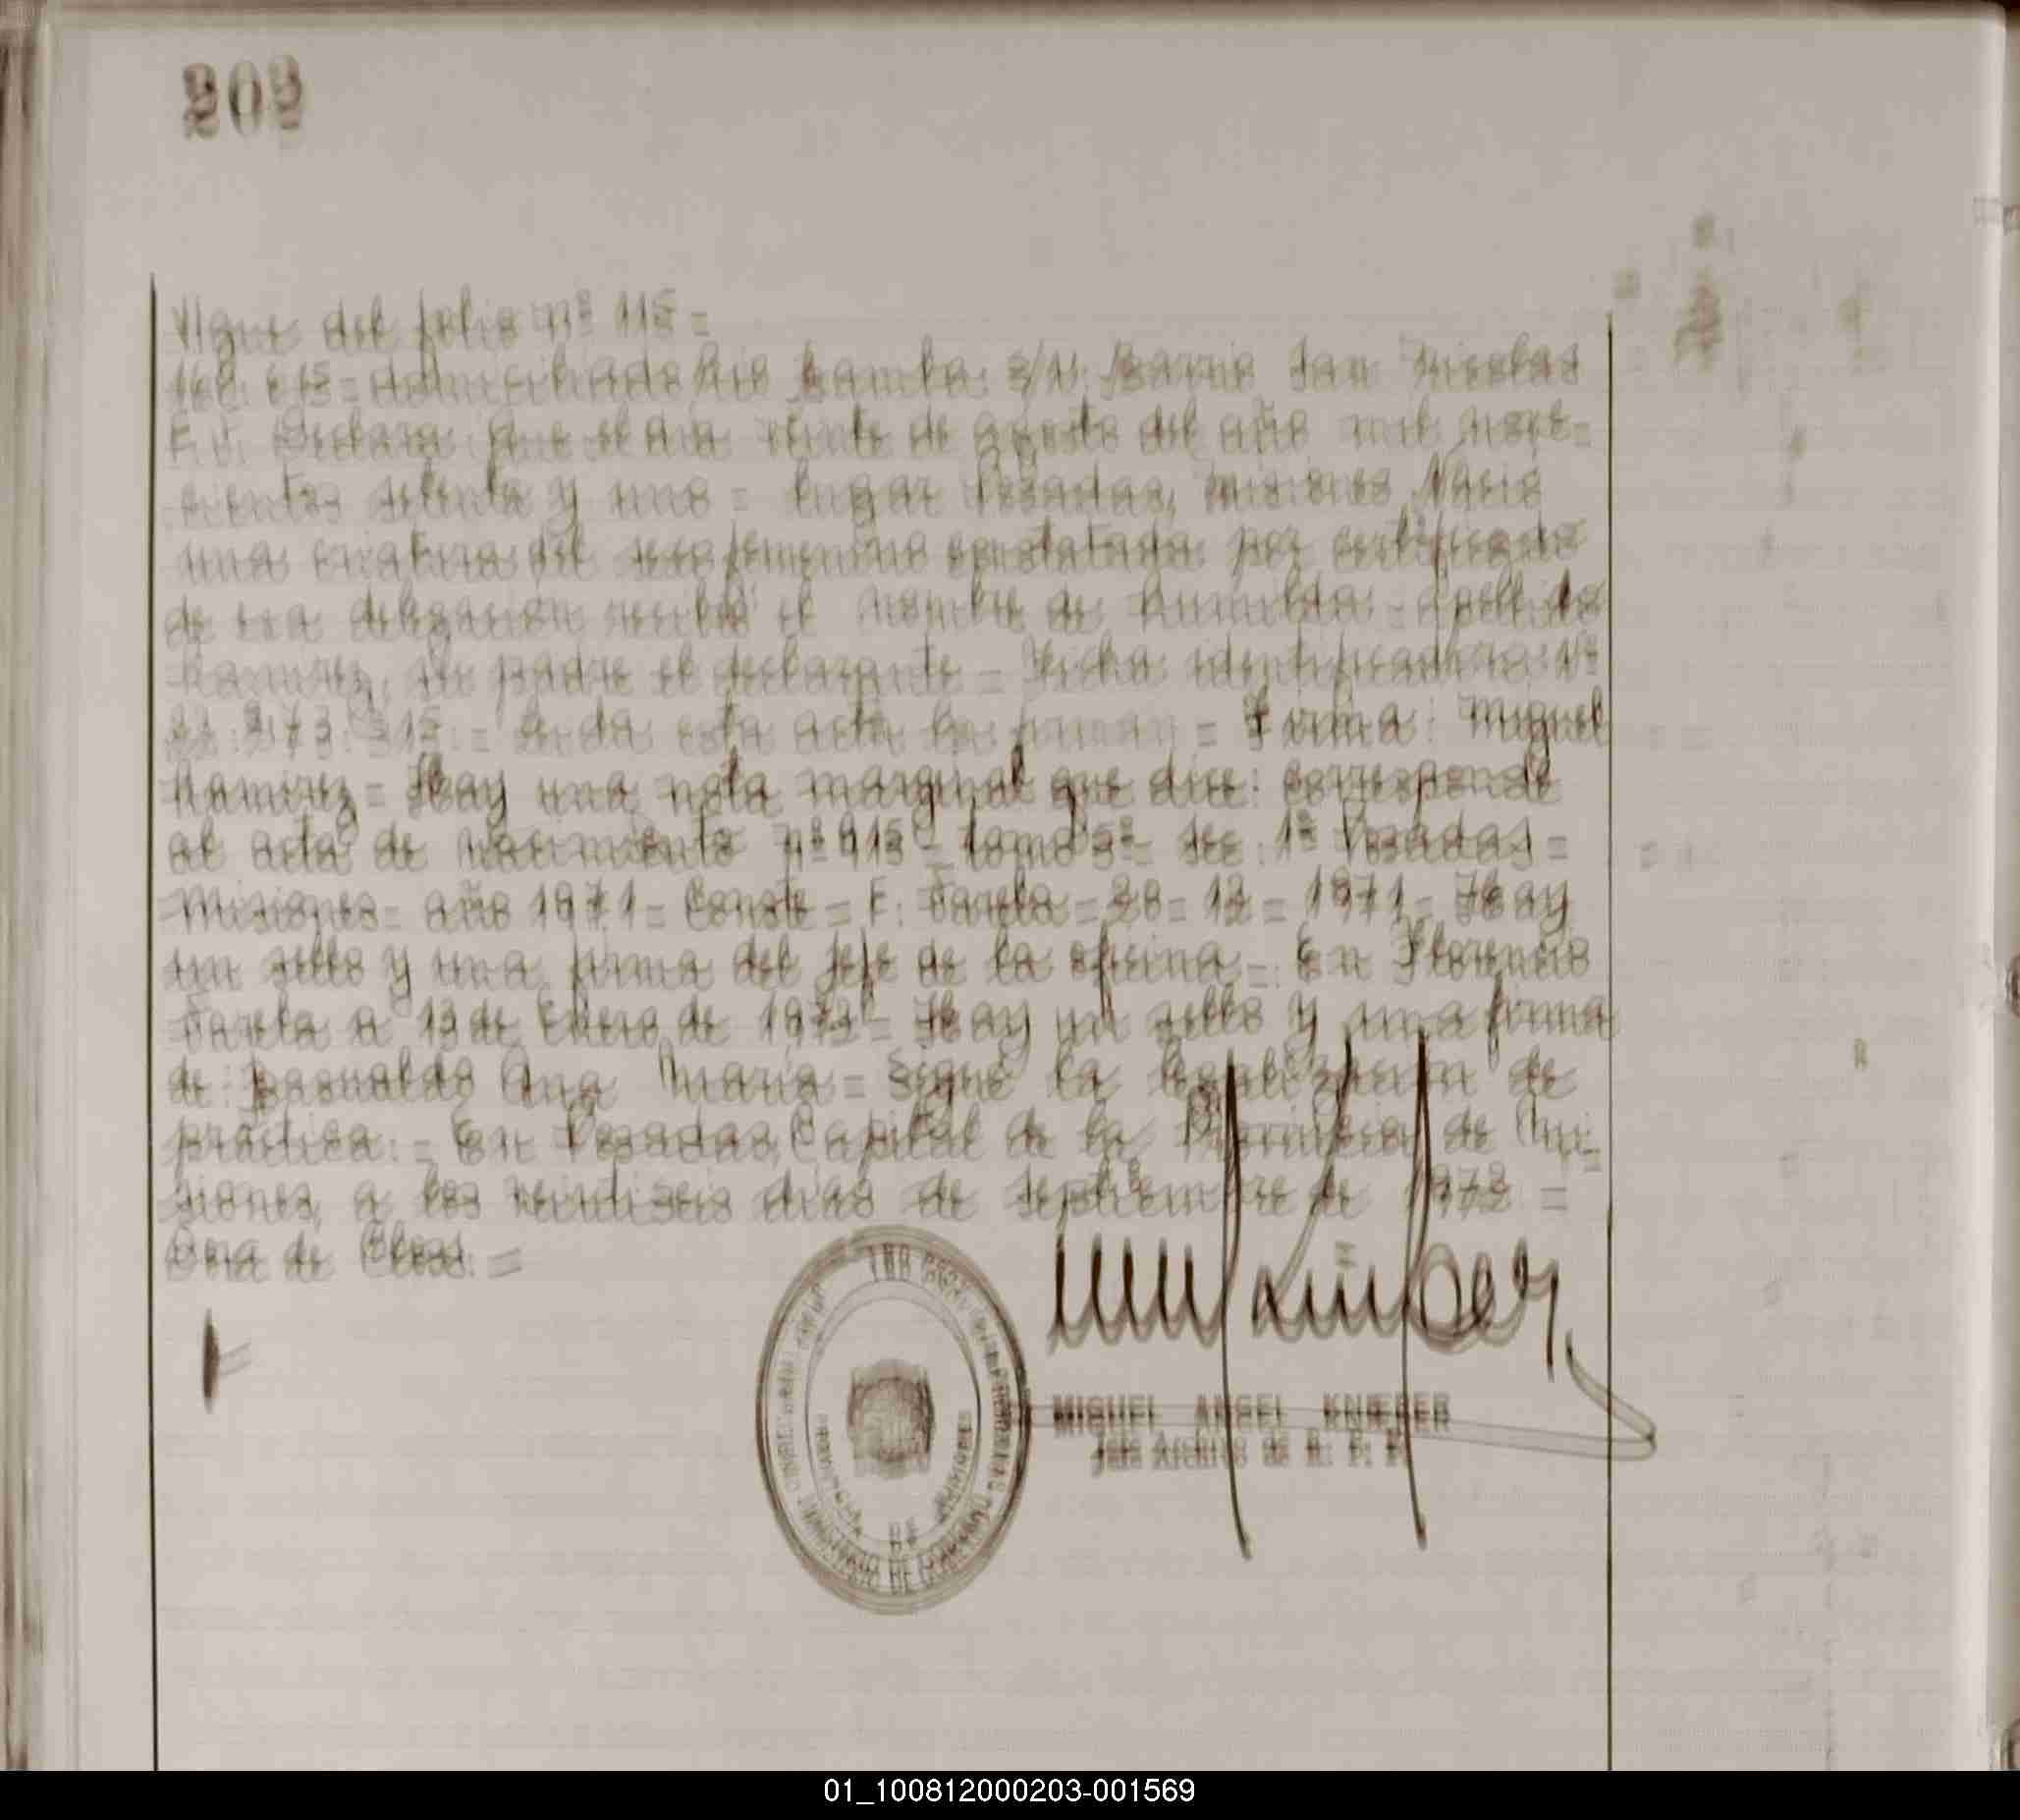 202
Sigue del folio nº 115 =
168.615 = domiciliado Rio Bamba S/N Barrio San Nicolas
F.V. Declara que el dia veinte de agosto del año mil nove=
cientos setenta y uno = lugar Posadas, Misiones Nació
una criatura del sexo femenino constatada por certificado
de esa delegación recibió el nombre de Humilda = Apellido
Ramirez, su padre el declarante = Ficha identificadora Nº
22.273.515 = Leida esta acta la firman = Firma: Miguel
Ramirez = Hay una nota marginal que dice: corresponde
al acta de nacimiento nº 915 = tomo 5º = Sec. 1º Posadas =
Misiones = año 1971 = Conste = F. Varela = 20 = 12 = 1971 = Hay
un sello y una firma del jefe de la oficina = En Florencio
Varela a 13 de Enero de 1972 = Hay un sello y una firma
de: Basualdo Ana Maria = Sigue la legalización de
práctica: = En Posadas, Capital de la Provincia de Mi=
siones, a los veintiseis dias de septiembre de 1973 =
de
MIGUEL ANGEL KNÆBER
Jefe Archivo de R. P. P.
PROVINCIA DE MISIONES
MINISTERIO DE GOBIERNO
01_100812000203-001569